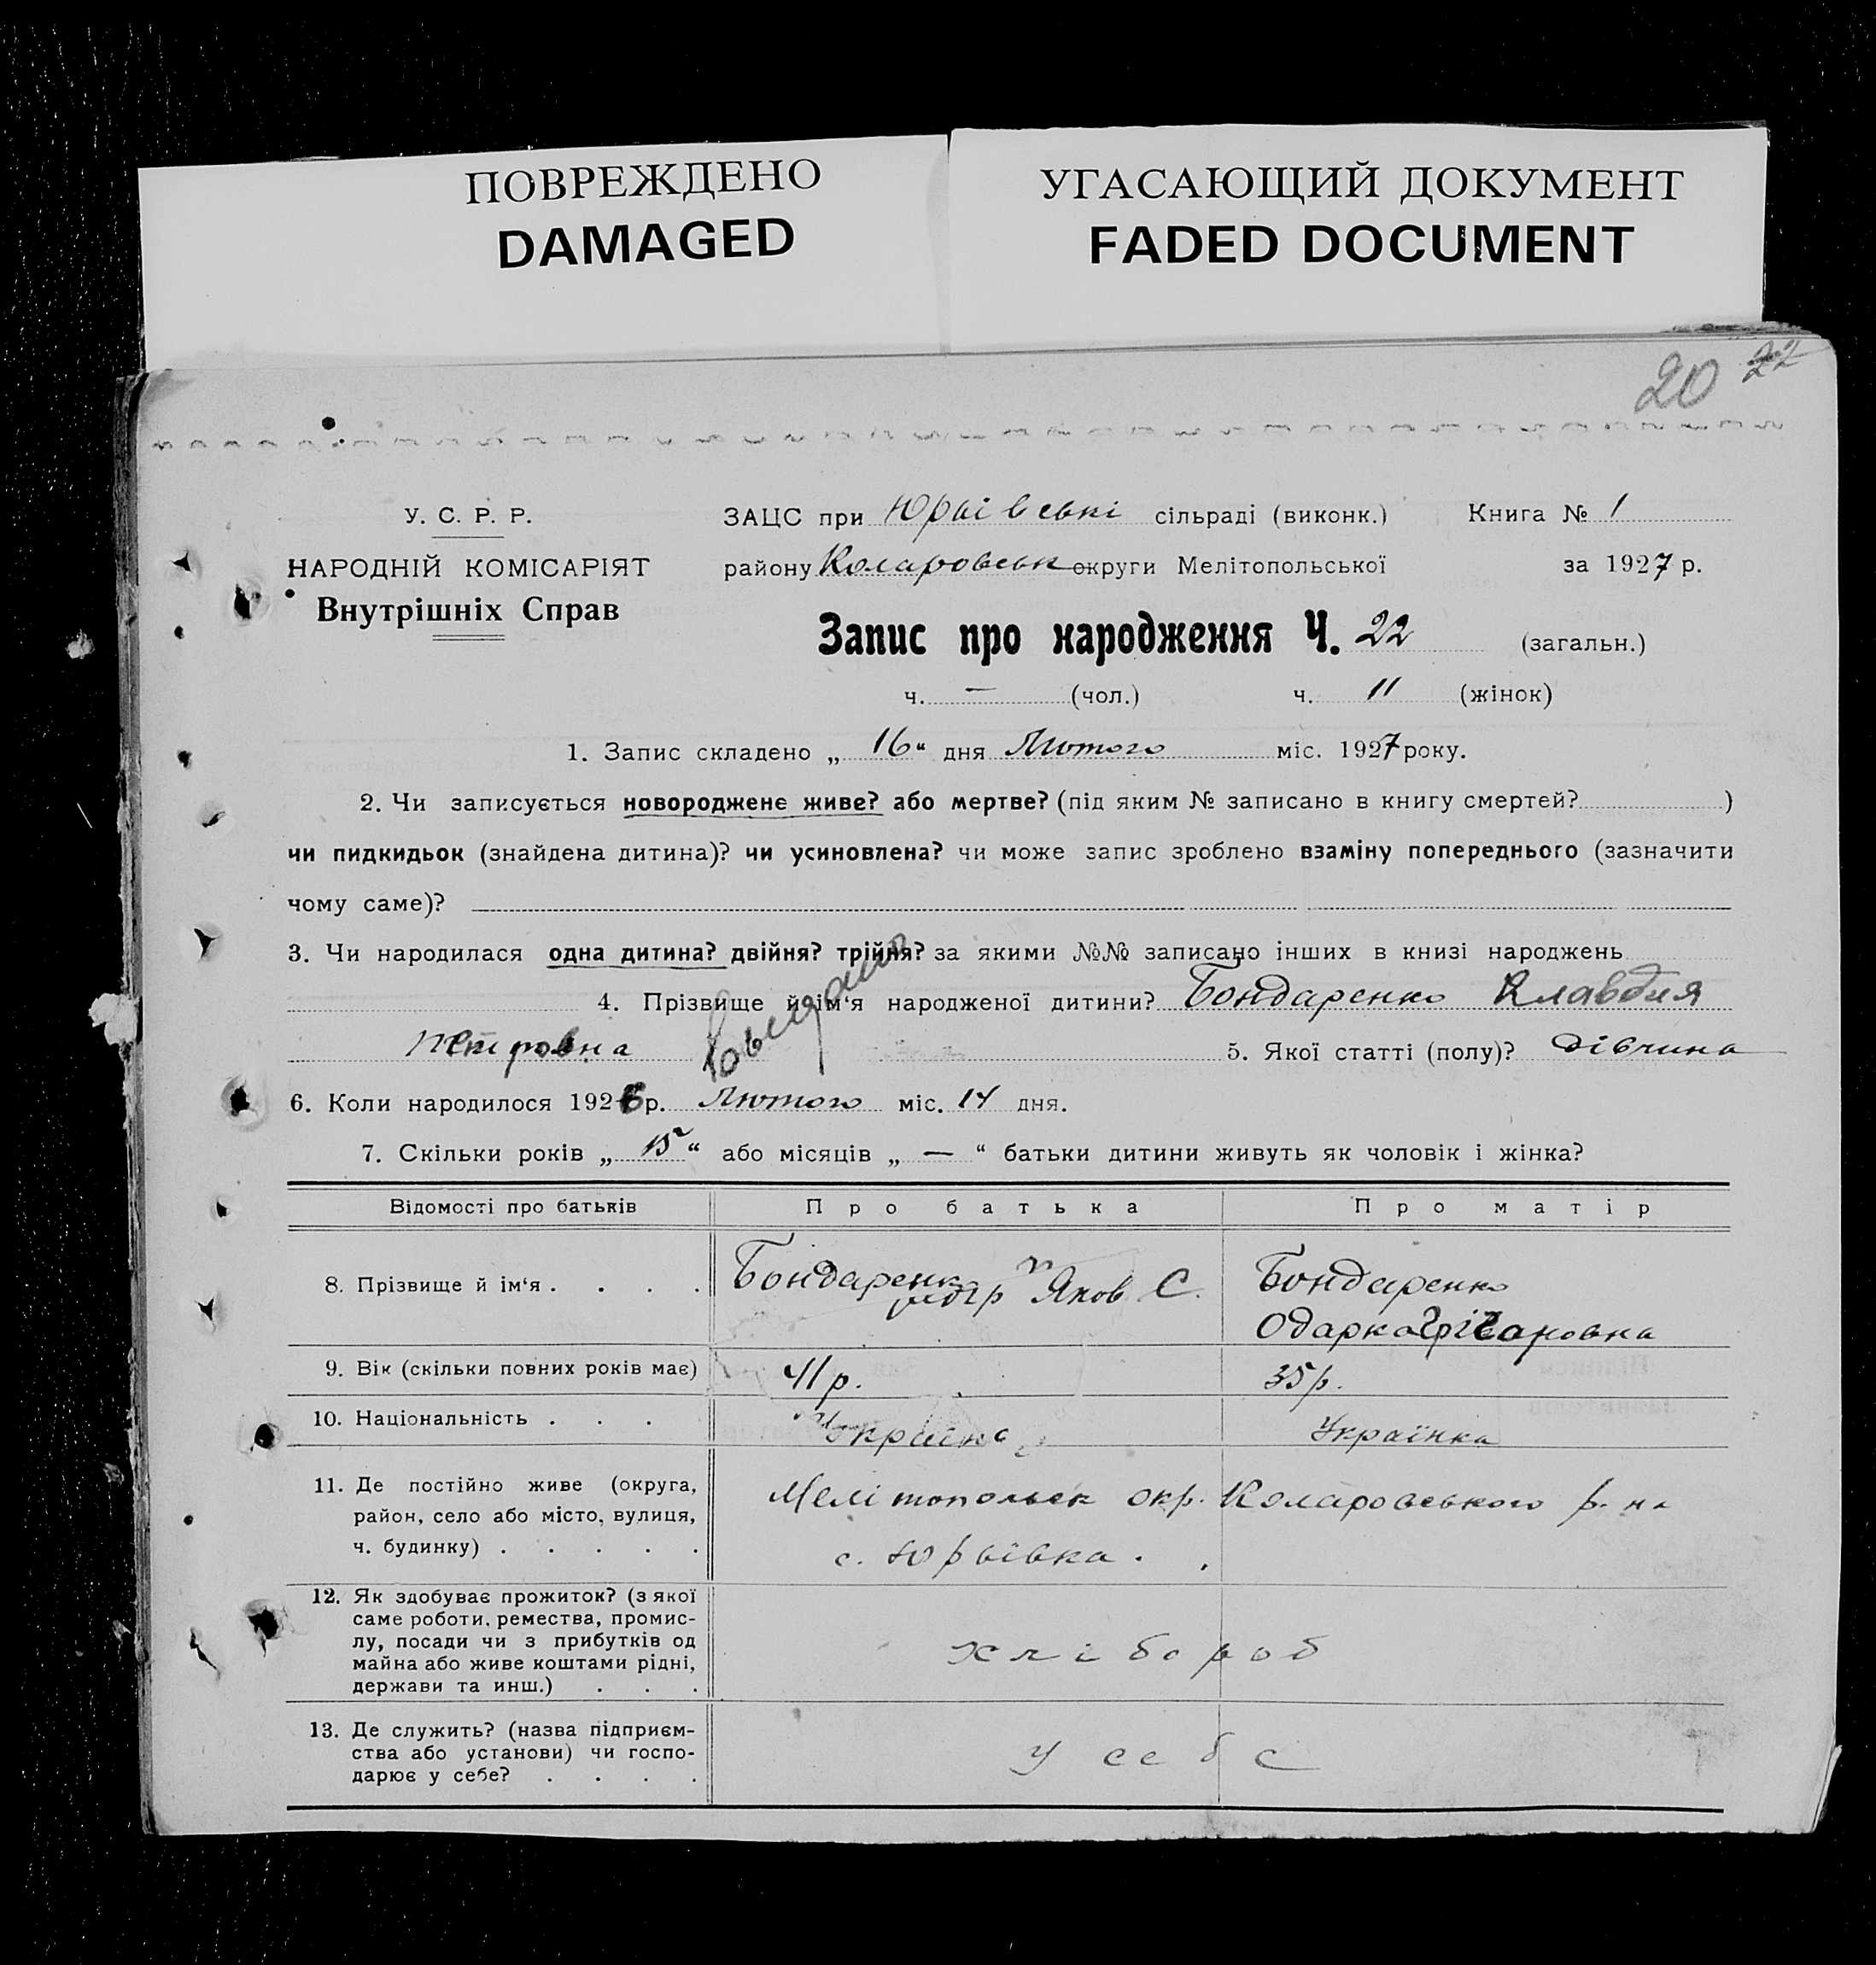 ПОВРЕЖДЕНО
DAMAGED
УГАСАЮЩИЙ ДОКУМЕНТ
FADED DOCUMENT
20 22
У. С. Р. Р.
НАРОДНІЙ КОМІСАРІЯТ
Внутрішніх Справ
ЗАЦС при Юрьївські сільраді (виконк.) Книга № 1
району Коларовськ округи Мелітопольської за 1927 р.
Запис про народження Ч. 22 (загальн.)
ч. — (чол.) ч. 11 (жінок)
1. Запис складено „ 16 “ дня Лютого міс. 1927 року.
2. Чи записується новороджене живе? або мертве? (під яким № записано в книгу смертей? )
чи пидкидьок (знайдена дитина)? чи усиновлена? чи може запис зроблено взаміну попереднього (зазначити
чому саме)?
3. Чи народилася одна дитина? двійня? трійня? за якими №№ записано інших в книзі народжень
4. Прізвище й ім‘я народженої дитини? Бондаренко Клавдия
Петровна 5. Якої статті (полу)? дівчина
6. Коли народилося 192 р. Лютого міс. 14 дня.
7. Скільки років „ 15 “ або місяців „ — “ батьки дитини живуть як чоловік і жінка?
Відомості про батьків Про батька Про матір
8. Прізвище й ім‘я . . . . Бондаренко Яков С. Бондаренко
Одарка
9. Вік (скільки повних років має) 41 р. 35 р.
10. Національність . . . Українка
11. Де постійно живе (округа,
район, село або місто, вулиця,
ч. будинку) . . . . .
Мелітопольск окр. Коларовського р-на
с. Юрьївка.
12. Як здобуває прожиток? (з якої
саме роботи, ремества, промис-
лу, посади чи з прибутків од
майна або живе коштами рідні,
держави та инш.) . . .
хлібороб
13. Де служить? (назва підприєм-
ства або установи) чи госпо-
дарює у себе? . . . .
у себе